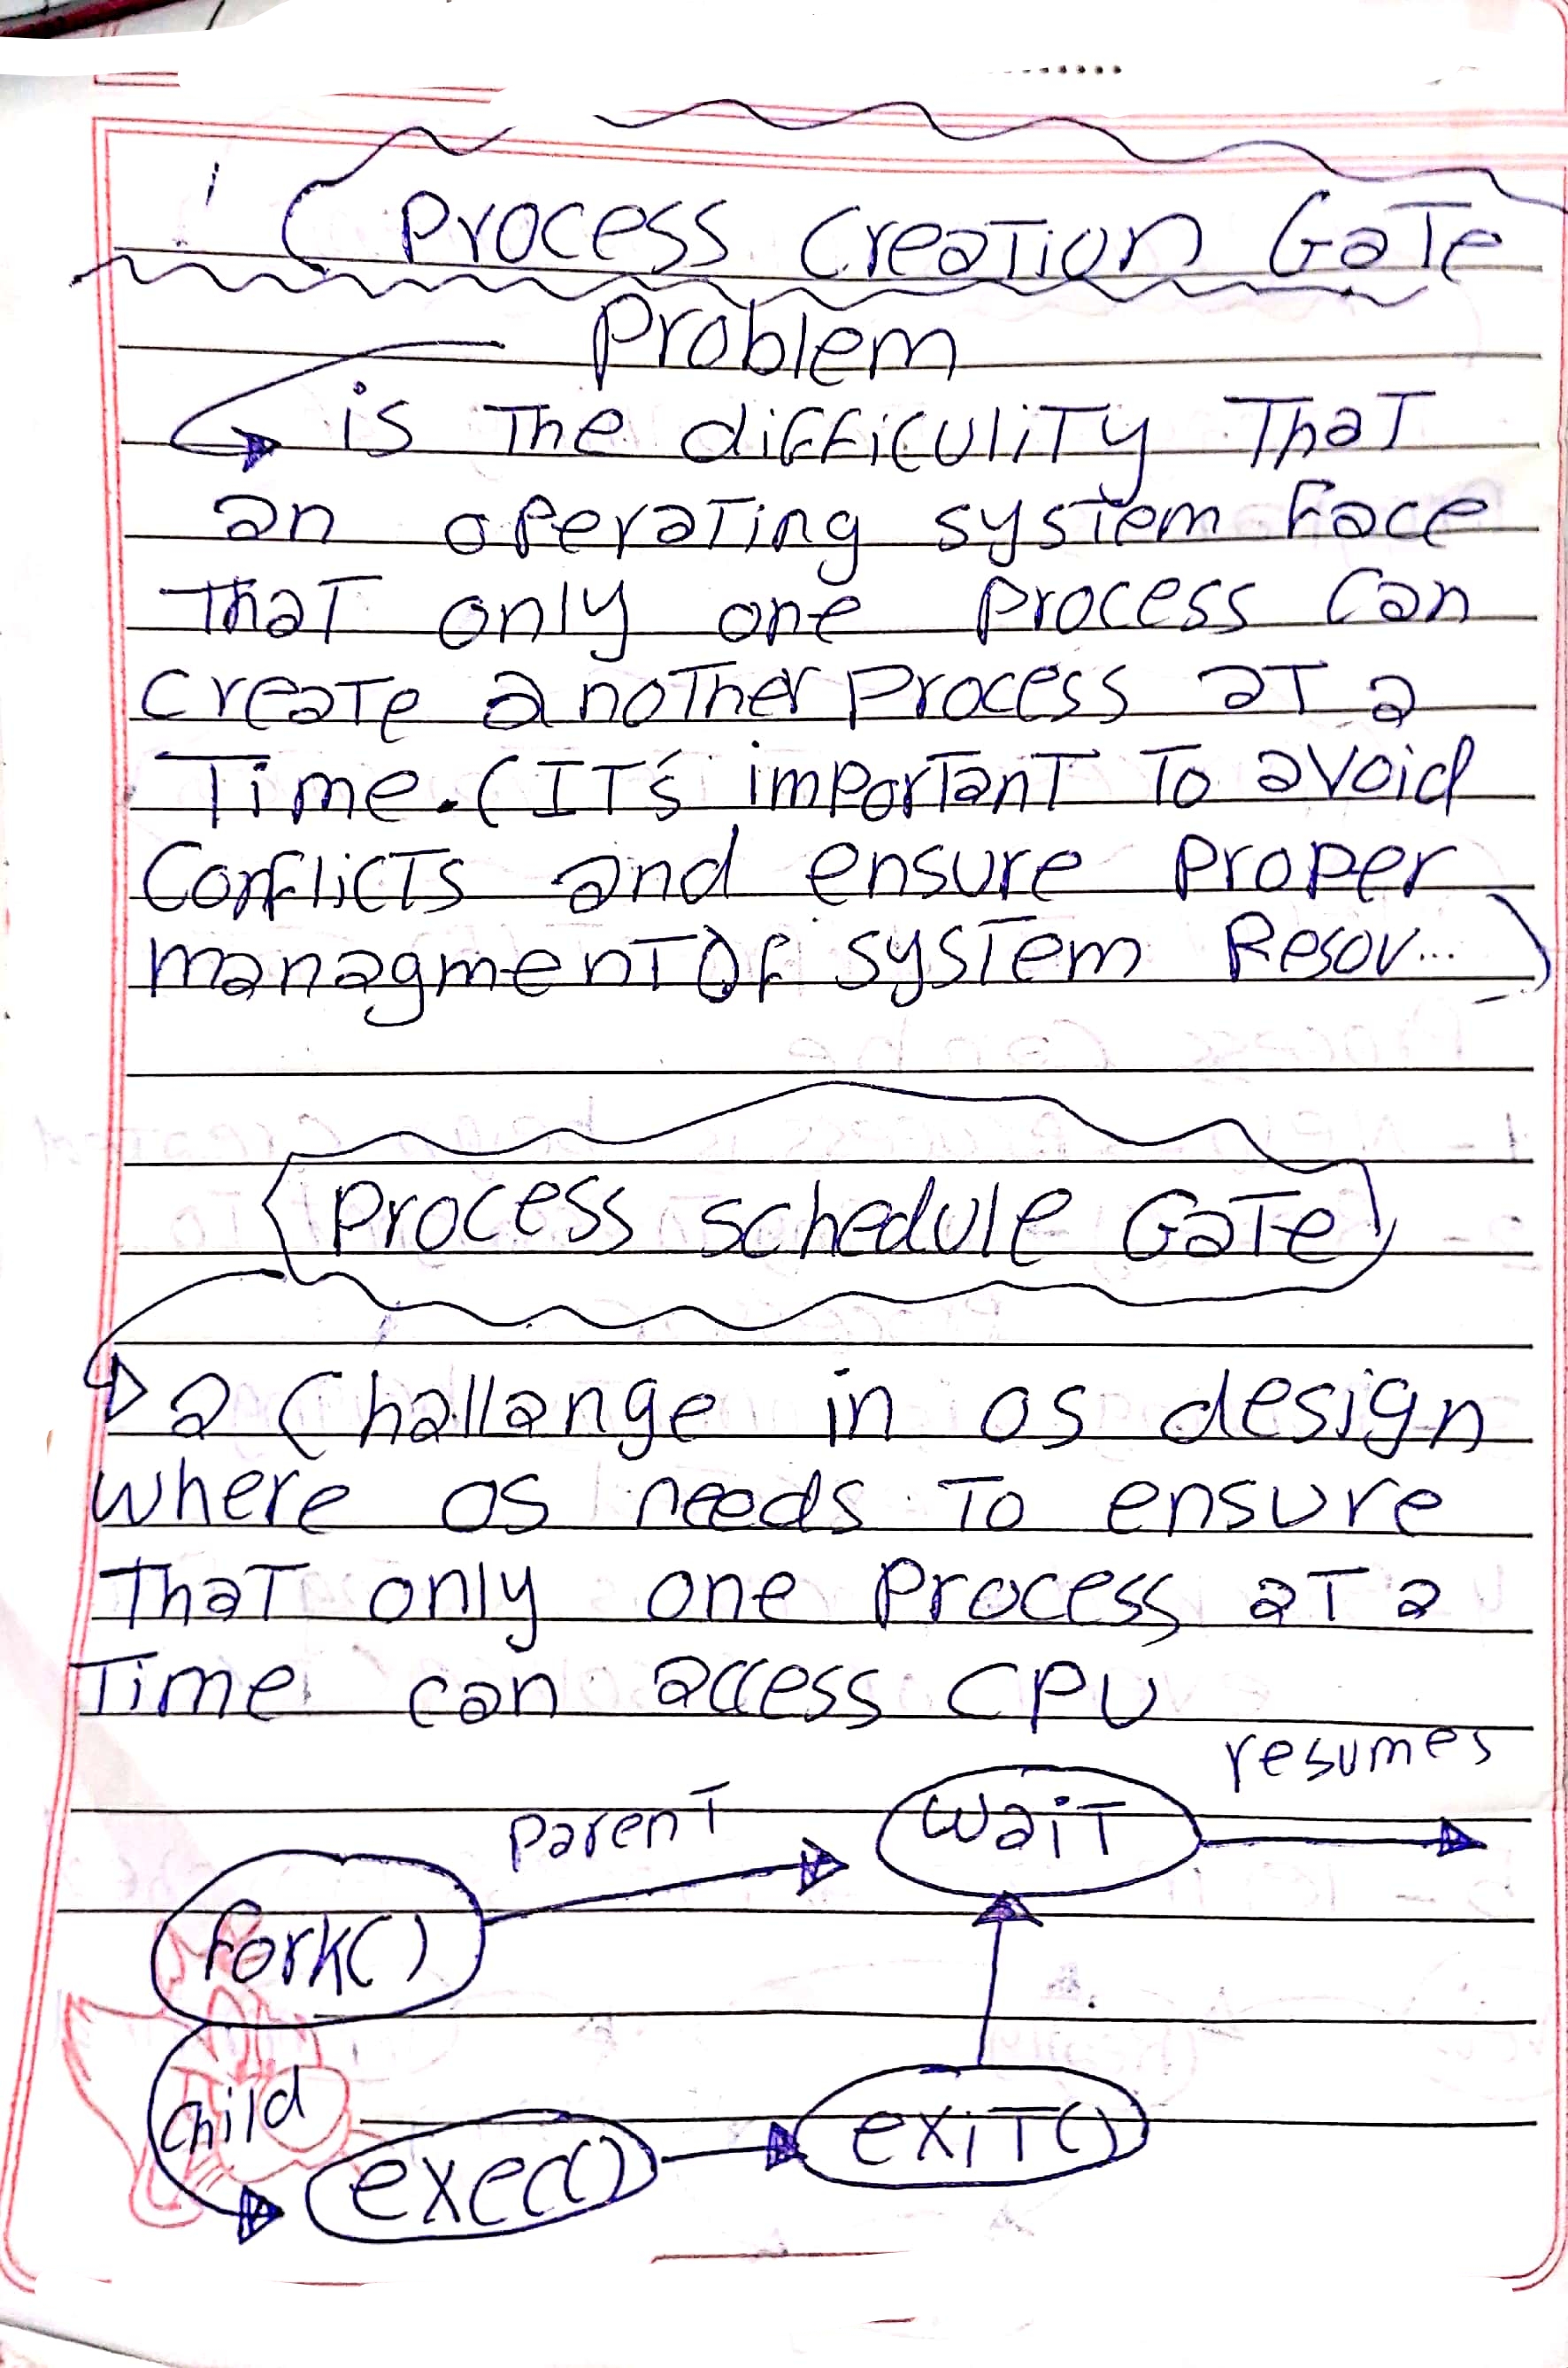 Process Creation Gate
Problem
is The difficulity That
an operating system Face
That only one process can
create another process at a
Time. (It's important To avoid
Conflicts and ensure proper
managment of system Resou...)
Process schedule Gate
a Challange in os design
where os needs To ensure
That only one process at a
Time can access CPU
resumes
parent
wait
fork()
child
exec()
exit()